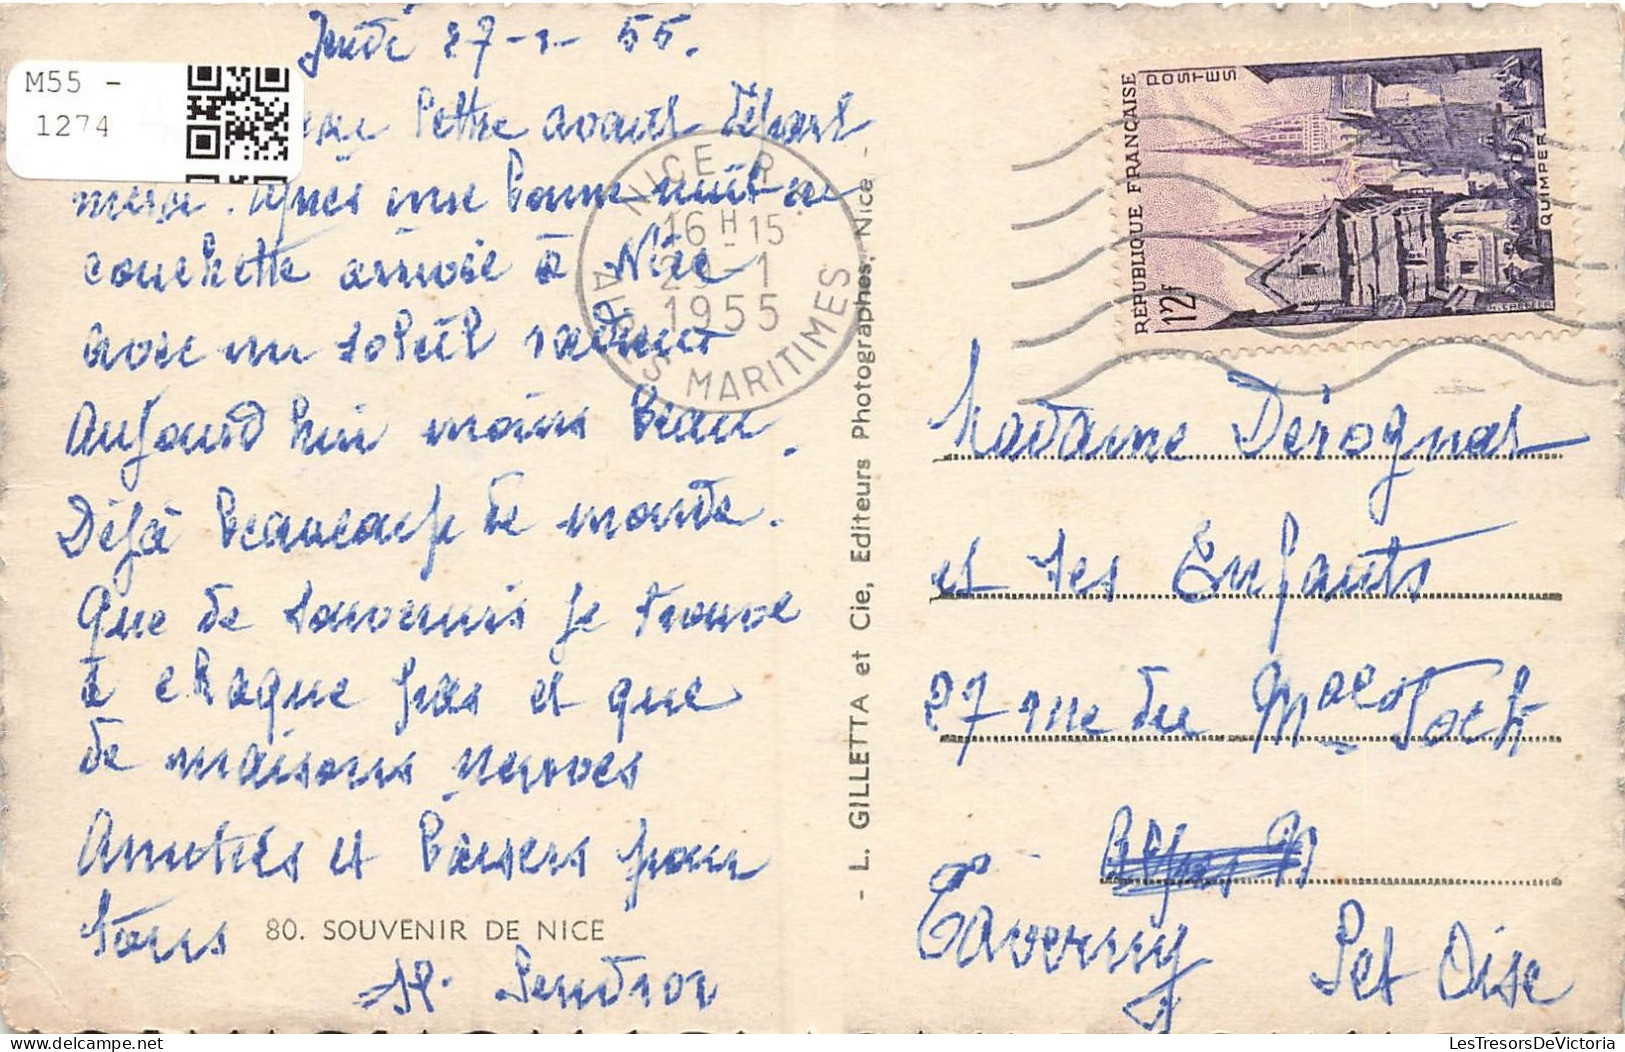 Jeudi 27-1-55.
M55 -
1274
lettre avant départ
merci. Après une bonne nuit en
couchette arrivée à Nice
avec un soleil radieux
Aujourd'hui moins beau.
Déjà beaucoup de monde.
Que de souvenirs je trouve
à chaque pas et que
de maisons neuves
Amitiés et baisers pour
tous
80. SOUVENIR DE NICE
- L. GILLETTA et Cie, Editeurs Photographes, Nice -
NICE R.P.
16 H 15
1
1955
ALPES MARITIMES
RÉPUBLIQUE FRANÇAISE
POSTES
12f
QUIMPER
Madame Dérognat
et ses Enfants
27 rue du Mal Foch
Taverny Set Oise
LesTresorsDeVictoria